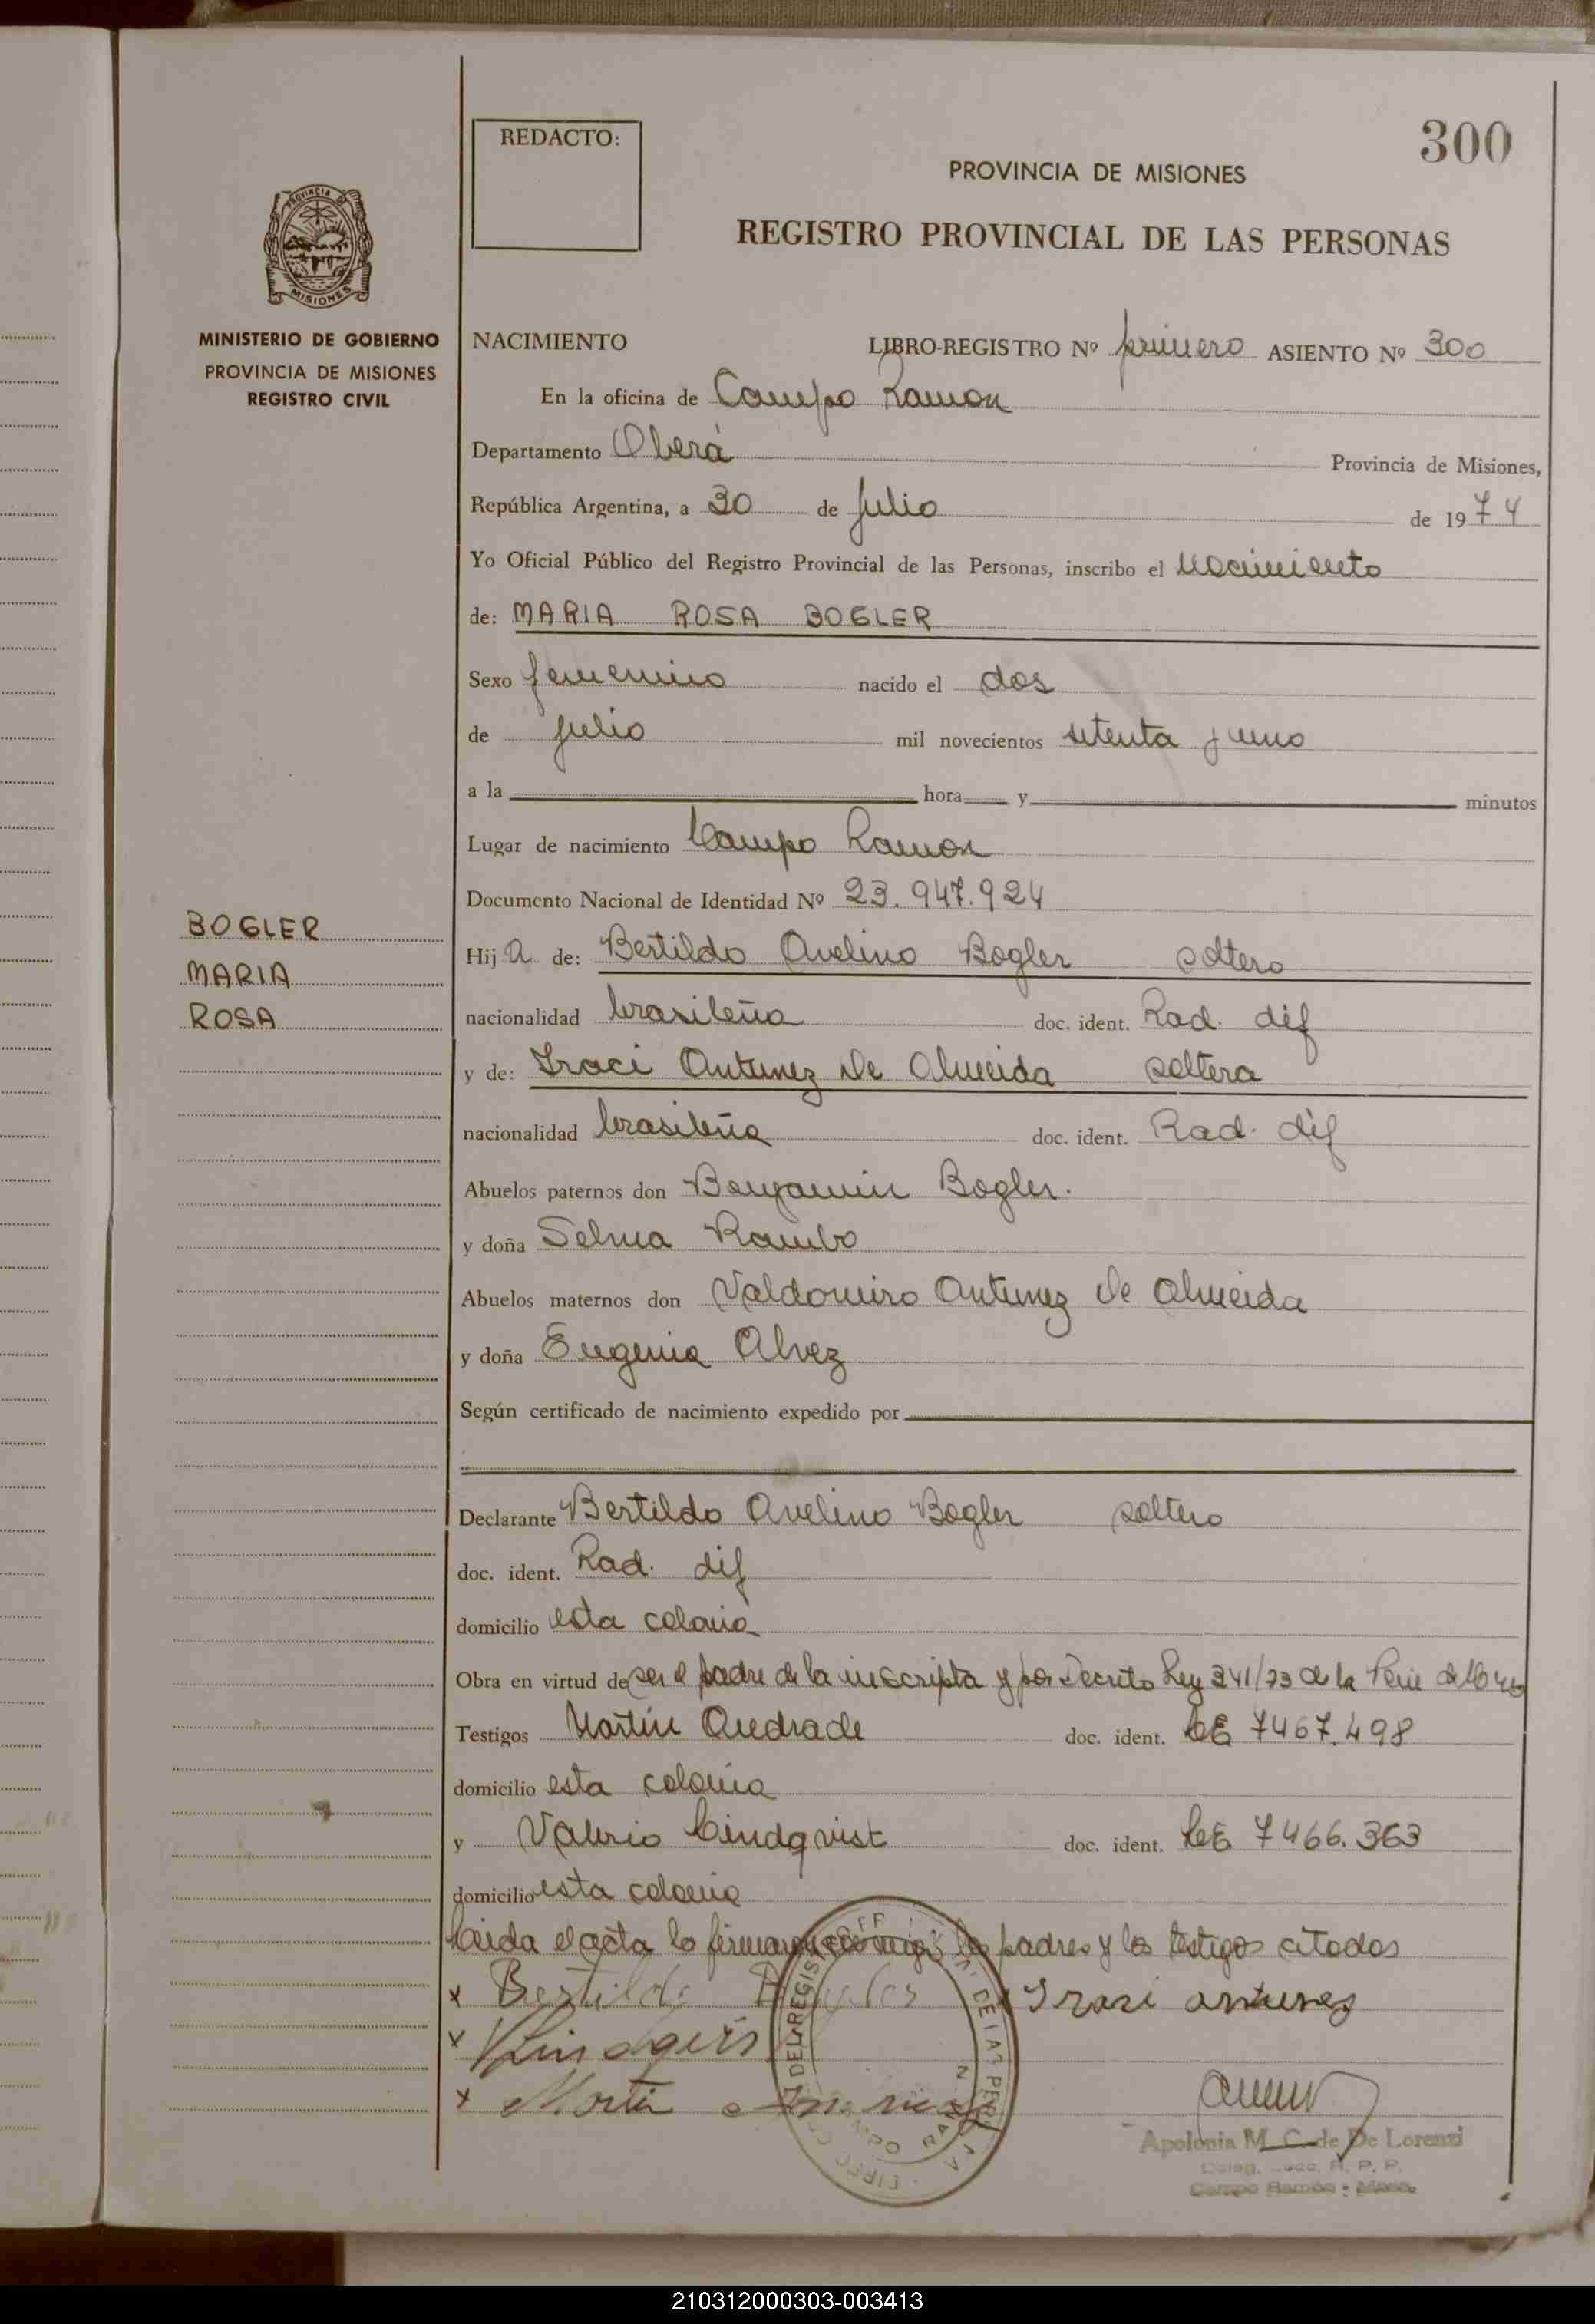 300
REDACTO:
PROVINCIA DE MISIONES
REGISTRO PROVINCIAL DE LAS PERSONAS
PROVINCIA DE
MISIONES
MINISTERIO DE GOBIERNO
PROVINCIA DE MISIONES
REGISTRO CIVIL
NACIMIENTO LIBRO-REGISTRO Nº primero ASIENTO Nº 300
En la oficina de Campo Ramon
Departamento Oberá Provincia de Misiones,
República Argentina, a 30 de julio de 1974
Yo Oficial Público del Registro Provincial de las Personas, inscribo el nacimiento
de: MARIA ROSA BOGLER
Sexo femenino nacido el dos
de julio mil novecientos setenta y uno
a la hora y minutos
Lugar de nacimiento Campo Ramon
Documento Nacional de Identidad Nº 23.947.924
BOGLER
MARIA
ROSA
Hija de: Bertildo Avelino Bogler soltero
nacionalidad brasileña doc. ident. Rad. dif
y de: Iraci Antunez De Almeida soltera
nacionalidad brasileña doc. ident. Rad. dif
Abuelos paternos don Benjamin Bogler.
y doña Selma Rambo
Abuelos maternos don Valdomiro Antunez De Almeida
y doña Eugenia Alvez
Según certificado de nacimiento expedido por
Declarante Bertildo Avelino Bogler soltero
doc. ident. Rad. dif
domicilio esta colonia
Obra en virtud de ser el padre de la inscripta y por Decreto Ley 341/73 de la
Testigos Martin Andrade doc. ident. LE 7467.498
domicilio esta colonia
y Valerio Lindqvist doc. ident. LE 7466.363
domicilio esta colonia
Leida el acta la firman conmigo los padres y los testigos citados
x Bertildo Bogler Iraci antunez
x
x Martin
Apolonia M. C. de De Lorenzi
Deleg. R. P. P.
Campo Ramón - Mnes.
210312000303-003413